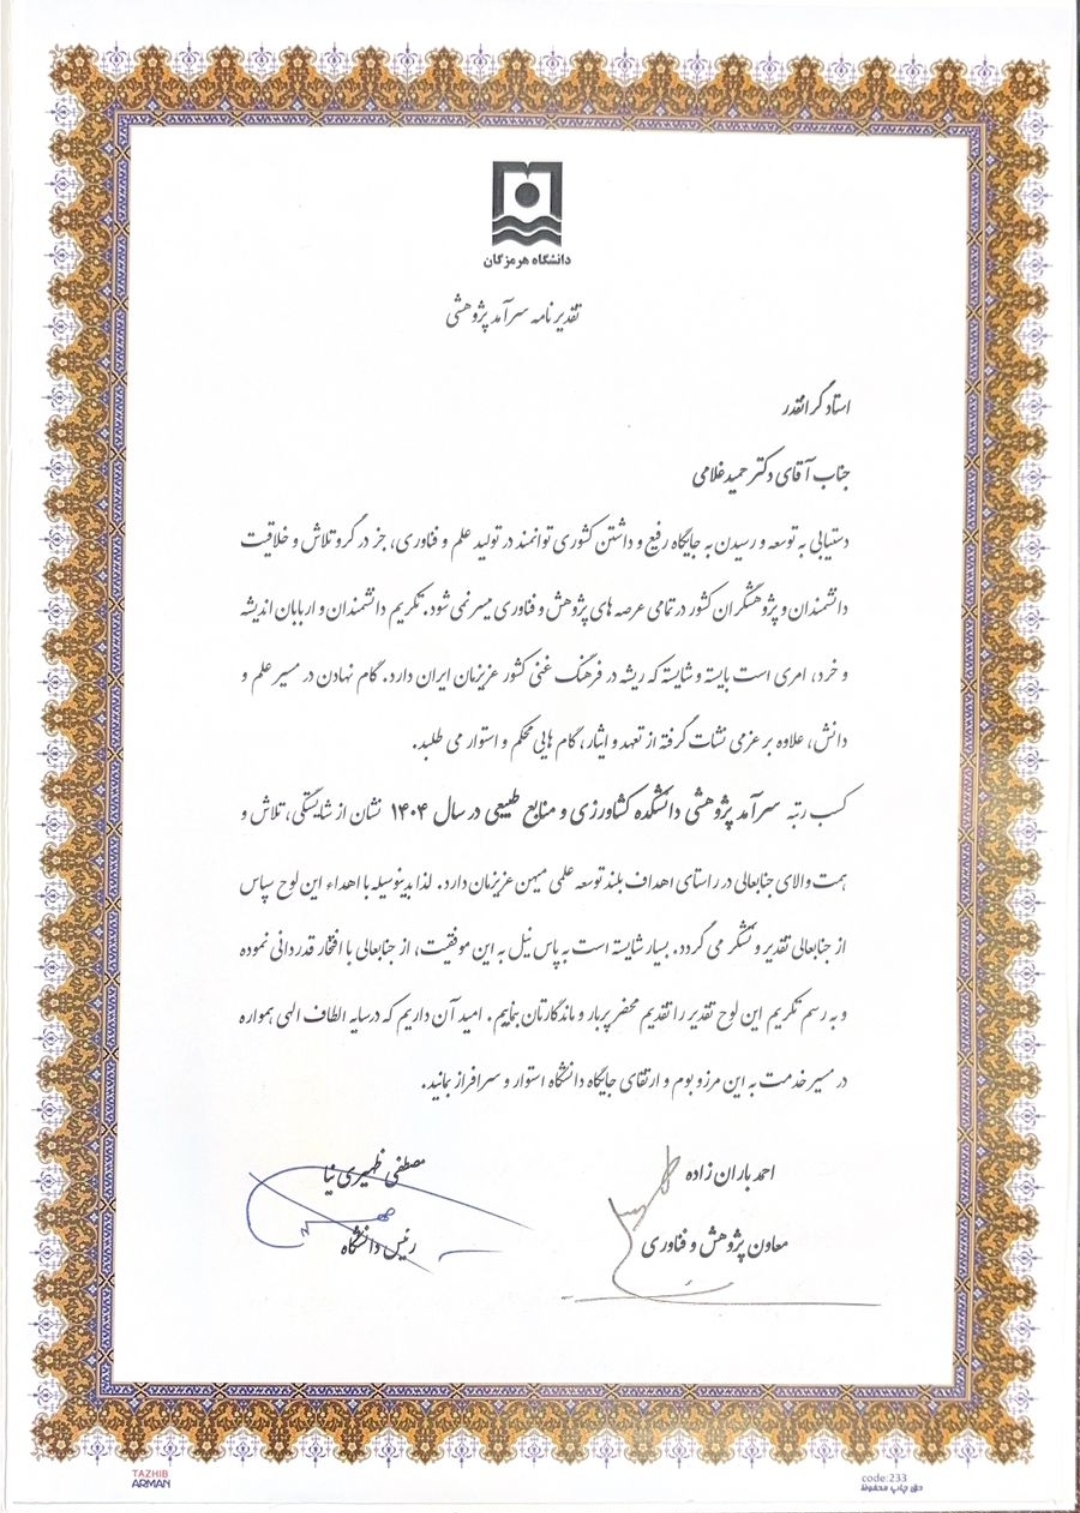 دانشگاه هرمزگان
تقدیرنامه سرآمد پژوهشی
استاد گرانقدر
جناب آقای دکتر حمید غلامی
دستیابی به توسعه و رسیدن به جایگاه رفیع و داشتن کشوری توانمند در تولید علم و فناوری، جز در گرو تلاش و خلاقیت
دانشمندان و پژوهشگران کشور در تمامی عرصه های پژوهش و فناوری میسر نمی شود. تکریم دانشمندان و اربابان اندیشه
و خرد، امری است بایسته و شایسته که ریشه در فرهنگ غنی کشور عزیزمان ایران دارد. گام نهادن در مسیر علم و
دانش، علاوه بر عزمی نشات گرفته از تعهد و ایثار، گام هایی محکم و استوار می طلبد.
کسب رتبه سرآمد پژوهشی دانشکده کشاورزی و منابع طبیعی در سال ۱۴۰۴ نشان از شایستگی، تلاش و
همت والای جنابعالی در راستای اهداف بلند توسعه علمی میهن عزیزمان دارد. لذا بدینوسیله با اهداء این لوح سپاس
از جنابعالی تقدیر و تشکر می گردد. بسیار شایسته است به پاس نیل به این موفقیت، از جنابعالی با افتخار قدردانی نموده
و به رسم تکریم این لوح تقدیر را تقدیم محضر پربار و ماندگارتان بنماییم. امید آن داریم که در سایه الطاف الهی همواره
در مسیر خدمت به این مرز و بوم و ارتقای جایگاه دانشگاه استوار و سرافراز بمانید.
احمد باران زاده
معاون پژوهش و فناوری
مصطفی ظهیری نیا
رئیس دانشگاه
TAZHIB
ARMAN
code:233
حق چاپ محفوظ